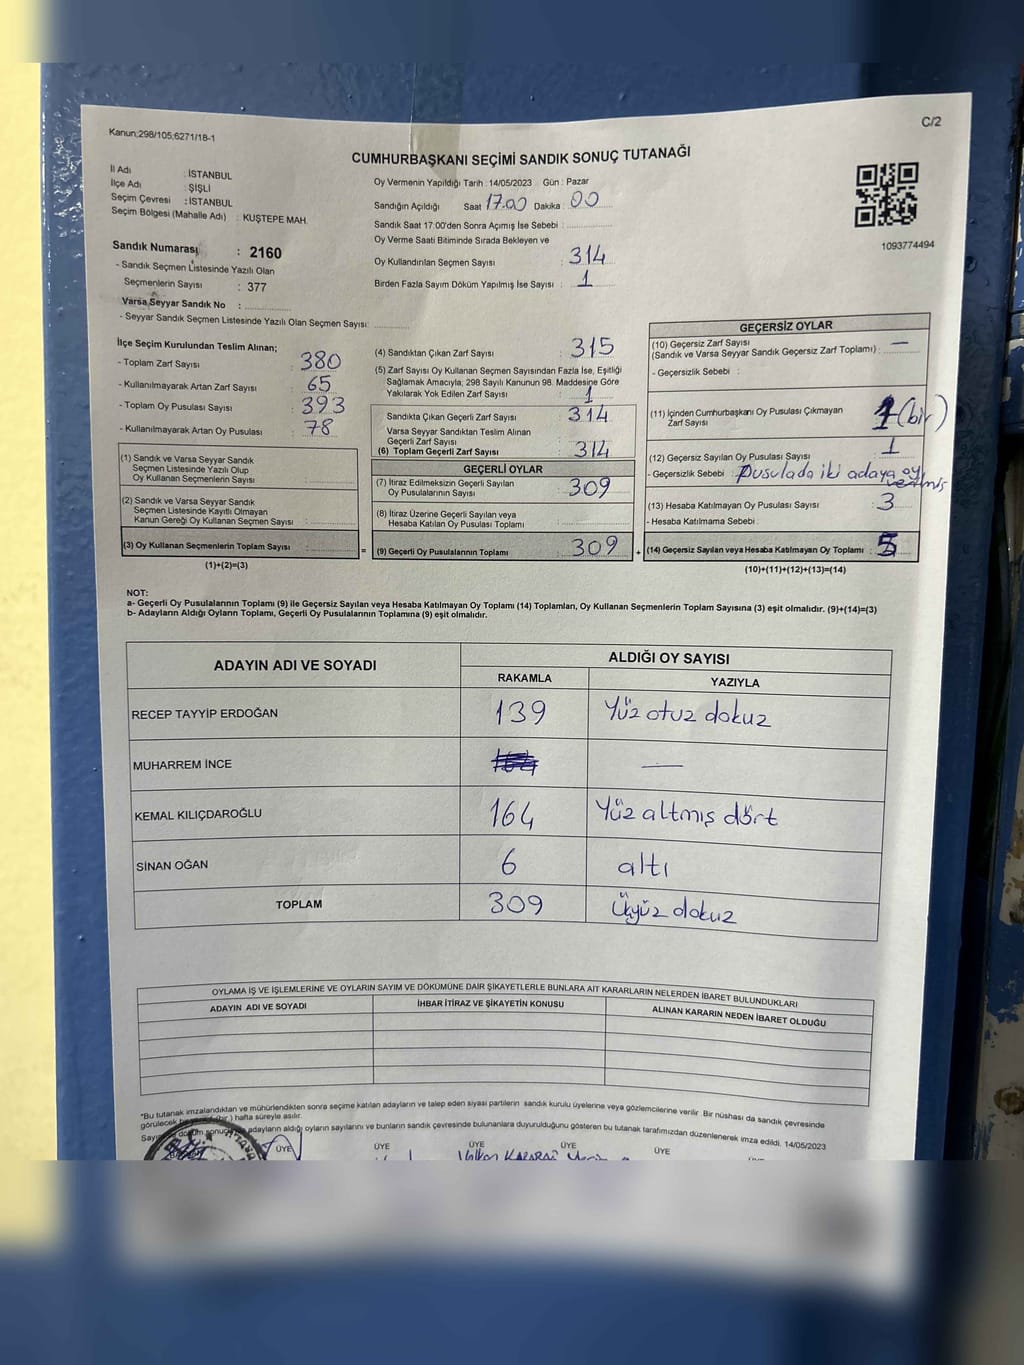 Kanun:298/105;6271/18-1
C/2
CUMHURBAŞKANI SEÇİMİ SANDIK SONUÇ TUTANAĞI
İl Adı : İSTANBUL
İlçe Adı : ŞİŞLİ
Seçim Çevresi : İSTANBUL
Seçim Bölgesi (Mahalle Adı) : KUŞTEPE MAH.
Sandık Numarası : 2160
- Sandık Seçmen Listesinde Yazılı Olan
Seçmenlerin Sayısı : 377
Varsa Seyyar Sandık No :
- Seyyar Sandık Seçmen Listesinde Yazılı Olan Seçmen Sayısı:
Oy Vermenin Yapıldığı Tarih :14/05/2023 Gün : Pazar
Sandığın Açıldığı Saat 17.00 Dakika : 00
Sandık Saat 17:00'den Sonra Açımış İse Sebebi :
Oy Verme Saati Bitiminde Sırada Bekleyen ve
Oy Kullandırılan Seçmen Sayısı : 314
Birden Fazla Sayım Döküm Yapılmış İse Sayısı : 1
1093774494
İlçe Seçim Kurulundan Teslim Alınan;
- Toplam Zarf Sayısı : 380
- Kullanılmayarak Artan Zarf Sayısı : 65
- Toplam Oy Pusulası Sayısı : 393
- Kullanılmayarak Artan Oy Pusulası : 78
(1) Sandık ve Varsa Seyyar Sandık
Seçmen Listesinde Yazılı Olup
Oy Kullanan Seçmenlerin Sayısı :
(2) Sandık ve Varsa Seyyar Sandık
Seçmen Listesinde Kayıtlı Olmayan
Kanun Gereği Oy Kullanan Seçmen Sayısı :
(3) Oy Kullanan Seçmenlerin Toplam Sayısı :
(1)+(2)=(3)
(4) Sandıktan Çıkan Zarf Sayısı : 315
(5) Zarf Sayısı Oy Kullanan Seçmen Sayısından Fazla İse, Eşitliği
Sağlamak Amacıyla; 298 Sayılı Kanunun 98. Maddesine Göre
Yakılarak Yok Edilen Zarf Sayısı : 1
Sandıkta Çıkan Geçerli Zarf Sayısı : 314
Varsa Seyyar Sandıktan Teslim Alınan
Geçerli Zarf Sayısı :
(6) Toplam Geçerli Zarf Sayısı : 314
GEÇERLİ OYLAR
(7) İtiraz Edilmeksizin Geçerli Sayılan
Oy Pusulalarının Sayısı : 309
(8) İtiraz Üzerine Geçerli Sayılan veya
Hesaba Katılan Oy Pusulası Toplamı :
= (9) Geçerli Oy Pusulalarının Toplamı : 309 +
GEÇERSİZ OYLAR
(10) Geçersiz Zarf Sayısı
(Sandık ve Varsa Seyyar Sandık Geçersiz Zarf Toplamı) : —
- Geçersizlik Sebebi :
(11) İçinden Cumhurbaşkanı Oy Pusulası Çıkmayan
Zarf Sayısı : 1 (bir)
(12) Geçersiz Sayılan Oy Pusulası Sayısı : 1
- Geçersizlik Sebebi : Pusulada iki adaya oy
verilmiş
(13) Hesaba Katılmayan Oy Pusulası Sayısı : 3
- Hesaba Katılmama Sebebi :
(14) Geçersiz Sayılan veya Hesaba Katılmayan Oy Toplamı : 5
(10)+(11)+(12)+(13)=(14)
NOT:
a- Geçerli Oy Pusulalarının Toplamı (9) ile Geçersiz Sayılan veya Hesaba Katılmayan Oy Toplamı (14) Toplamları, Oy Kullanan Seçmenlerin Toplam Sayısına (3) eşit olmalıdır. (9)+(14)=(3)
b- Adayların Aldığı Oyların Toplamı, Geçerli Oy Pusulalarının Toplamına (9) eşit olmalıdır.
ADAYIN ADI VE SOYADI
ALDIĞI OY SAYISI
RAKAMLA YAZIYLA
RECEP TAYYİP ERDOĞAN 139 Yüz otuz dokuz
MUHARREM İNCE —
KEMAL KILIÇDAROĞLU 164 Yüz altmış dört
SİNAN OĞAN 6 altı
TOPLAM 309 Üçyüz dokuz
OYLAMA İŞ VE İŞLEMLERİNE VE OYLARIN SAYIM VE DÖKÜMÜNE DAİR ŞİKAYETLERLE BUNLARA AİT KARARLARIN NELERDEN İBARET BULUNDUKLARI
ADAYIN ADI VE SOYADI İHBAR İTİRAZ VE ŞİKAYETİN KONUSU ALINAN KARARIN NEDEN İBARET OLDUĞU
*Bu tutanak imzalandıktan ve mühürlendikten sonra seçime katılan adayların ve talep eden siyasi partilerin sandık kurulu üyelerine veya gözlemcilerine verilir. Bir nüshası da sandık çevresinde
görülecek bir yere (bir ) hafta süreyle asılır.
adayların aldığı oyların sayılarını ve bunların sandık çevresinde bulunanlara duyurulduğunu gösteren bu tutanak tarafımızdan düzenlenerek imza edildi. 14/05/2023
ÜYE ÜYE ÜYE ÜYE ÜYE